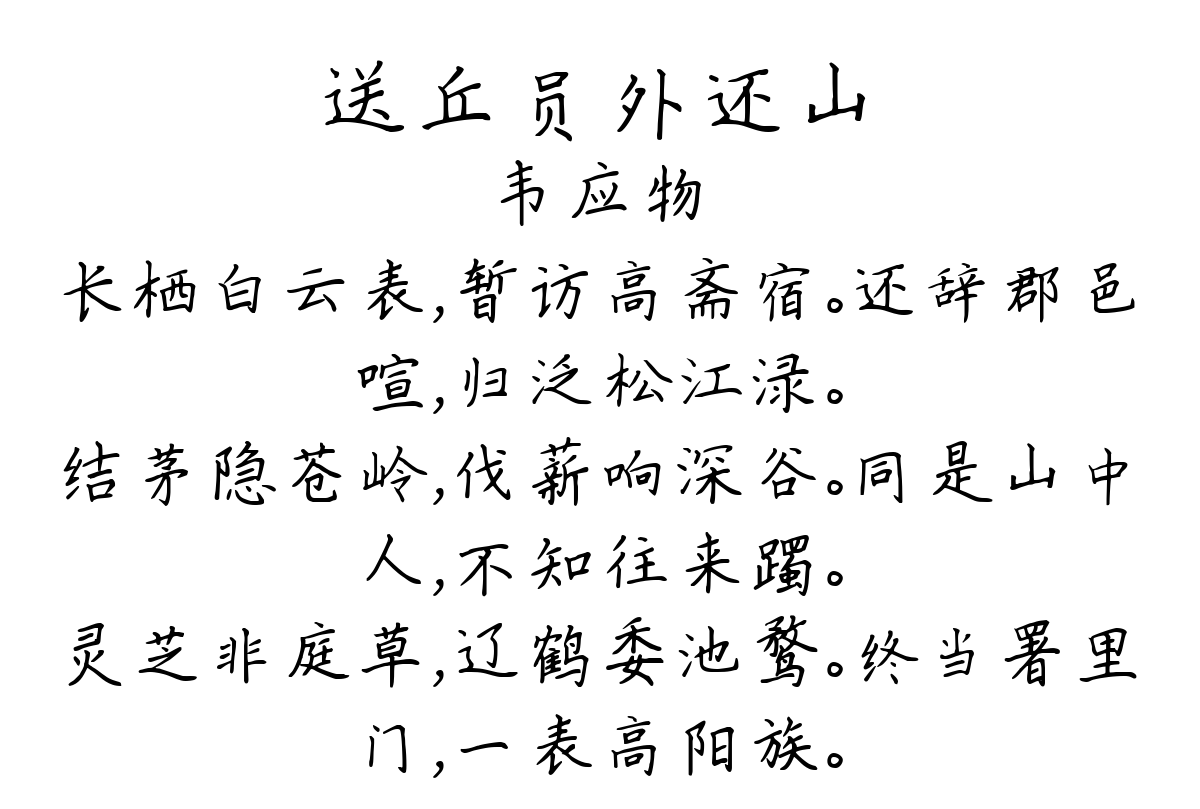 送丘员外还山
韦应物
长栖白云表,暂访高斋宿。还辞郡邑
喧,归泛松江渌。
结茅隐苍岭,伐薪响深谷。同是山中
人,不知往来躅。
灵芝非庭草,辽鹤委池鹜。终当署里
门,一表高阳族。